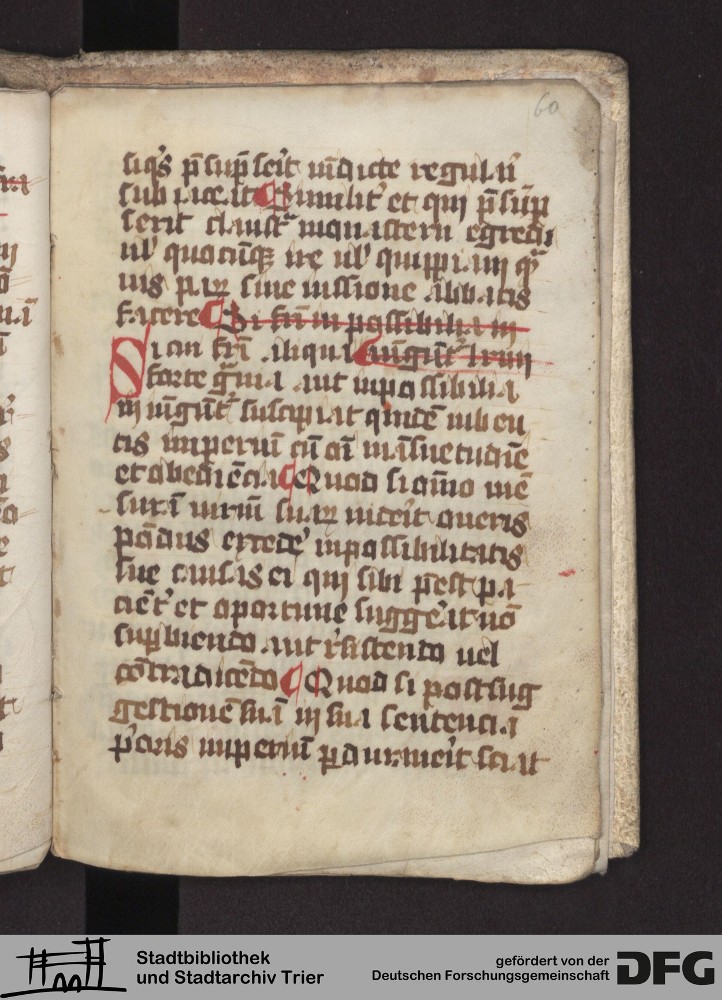 60
siq̄s p̄sūpserit vīdicte regulari
subiaceat Similit' et qui p̄sūp
serit claustr̄ monasterii egredi
ul' quocūq; ire ul' quippiam q̄
uis paruꝫ sine iussione abbatis
facere Si frī inpossibilia in
Si cui frī aliqua iūgūt' lxviii
forte gͣuia aut inpossibilia
iniūgūt' suscipiat quidē iuben
tis imperiū cū oī māsuetudīe
et obediēcia Quod si oīno mē
surā viriū suaꝝ viderit oneris
pōdus excedē inpossibilitatis
sue causas ei qui sibi p̄est pa
ciēt' et oportune suggerat nō
supbiendo aut rēsistendo uel
cōtradicēdo Quod si post sug
gestionē suā in sua sentencia
p'oris imperiū pdurauerit sciat
Stadtbibliothek
und Stadtarchiv Trier
gefördert von der
Deutschen Forschungsgemeinschaft
DFG